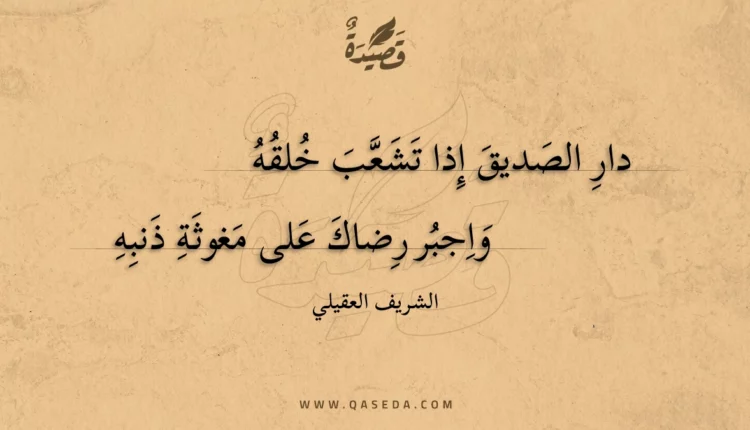 قَصِيْدَةٌ
دارِ الصَديقَ إِذا تَشَعَّبَ خُلقُهُ
وَاِجبُر رِضاكَ عَلى مَغوثَةِ ذَنبِهِ
الشريف العقيلي
WWW.QASEDA.COM